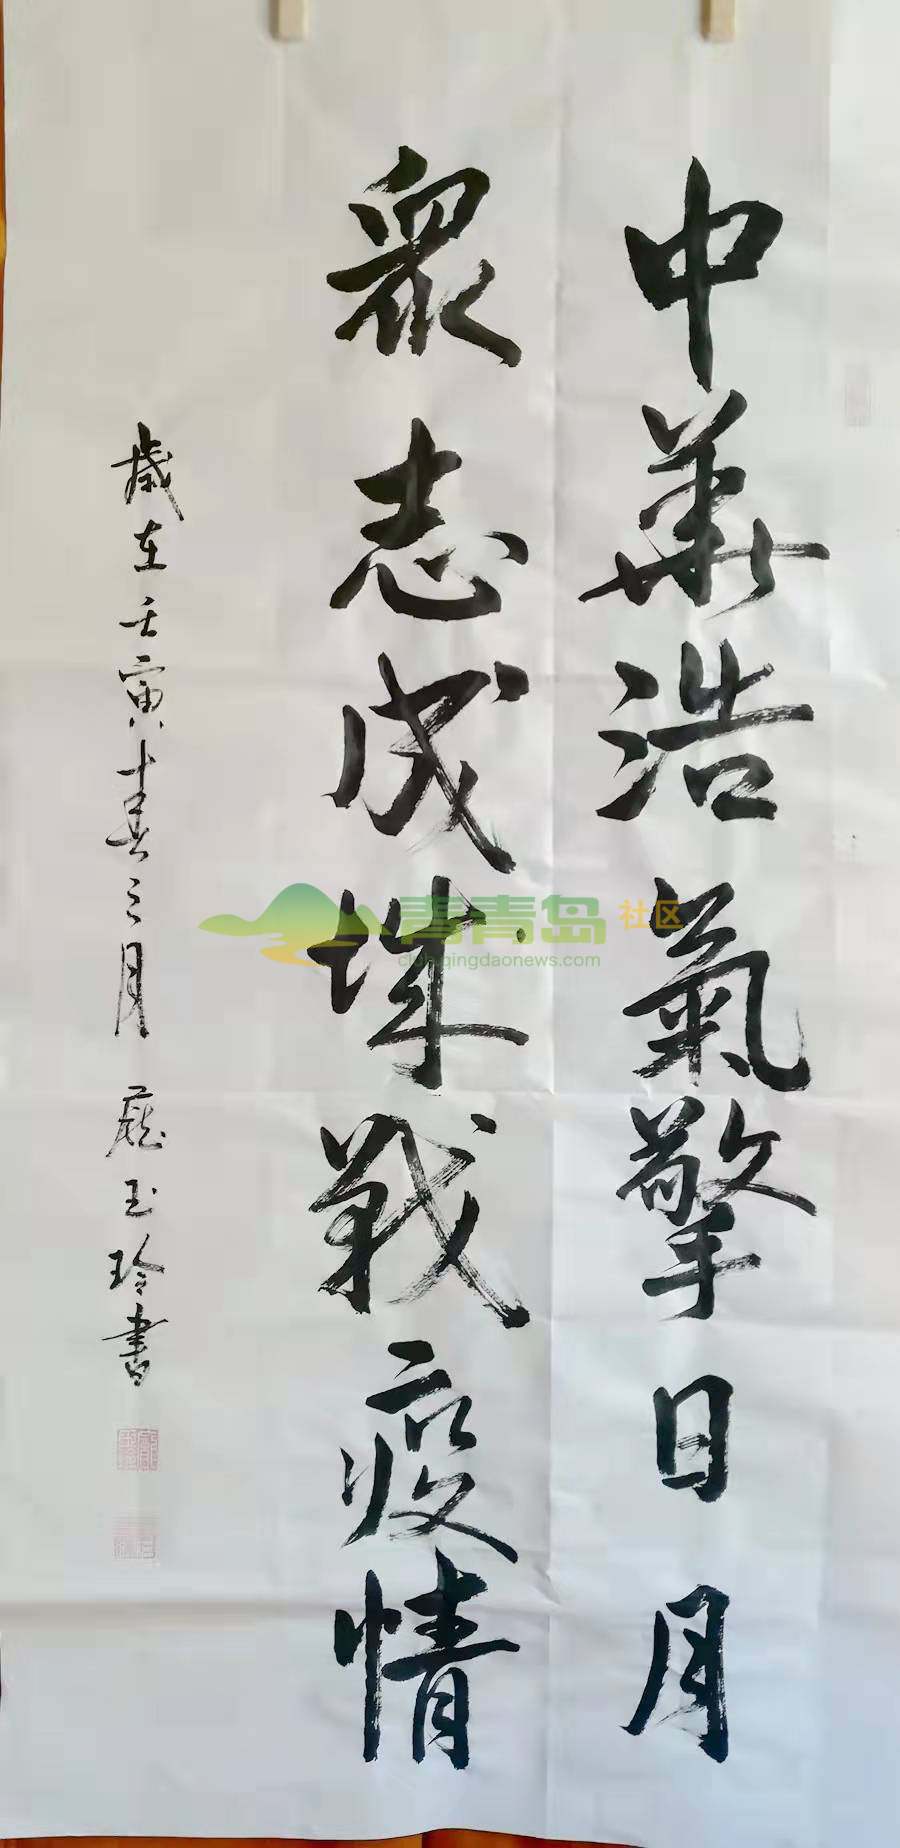 中華浩氣擎日月
眾志成城戰疫情
歲在壬寅年春三月 龐玉玲書
青青岛社区
club.qingdaonews.com